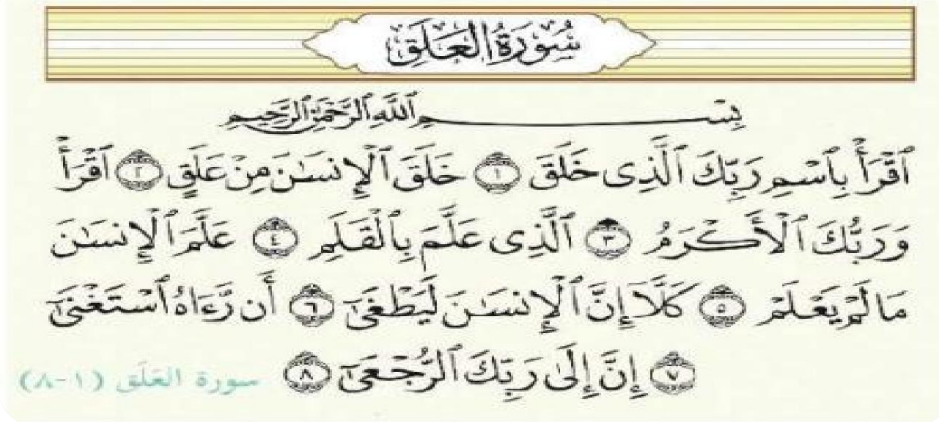 سُورَةُ العَلَقِ
بِسْمِ ٱللَّهِ ٱلرَّحْمَٰنِ ٱلرَّحِيمِ
ٱقْرَأْ بِٱسْمِ رَبِّكَ ٱلَّذِى خَلَقَ ١ خَلَقَ ٱلْإِنسَٰنَ مِنْ عَلَقٍ ٢ ٱقْرَأْ
وَرَبُّكَ ٱلْأَكْرَمُ ٣ ٱلَّذِى عَلَّمَ بِٱلْقَلَمِ ٤ عَلَّمَ ٱلْإِنسَٰنَ
مَا لَمْ يَعْلَمْ ٥ كَلَّآ إِنَّ ٱلْإِنسَٰنَ لَيَطْغَىٰٓ ٦ أَن رَّءَاهُ ٱسْتَغْنَىٰٓ
٧ إِنَّ إِلَىٰ رَبِّكَ ٱلرُّجْعَىٰٓ ٨ سورة العَلَق (١-٨)